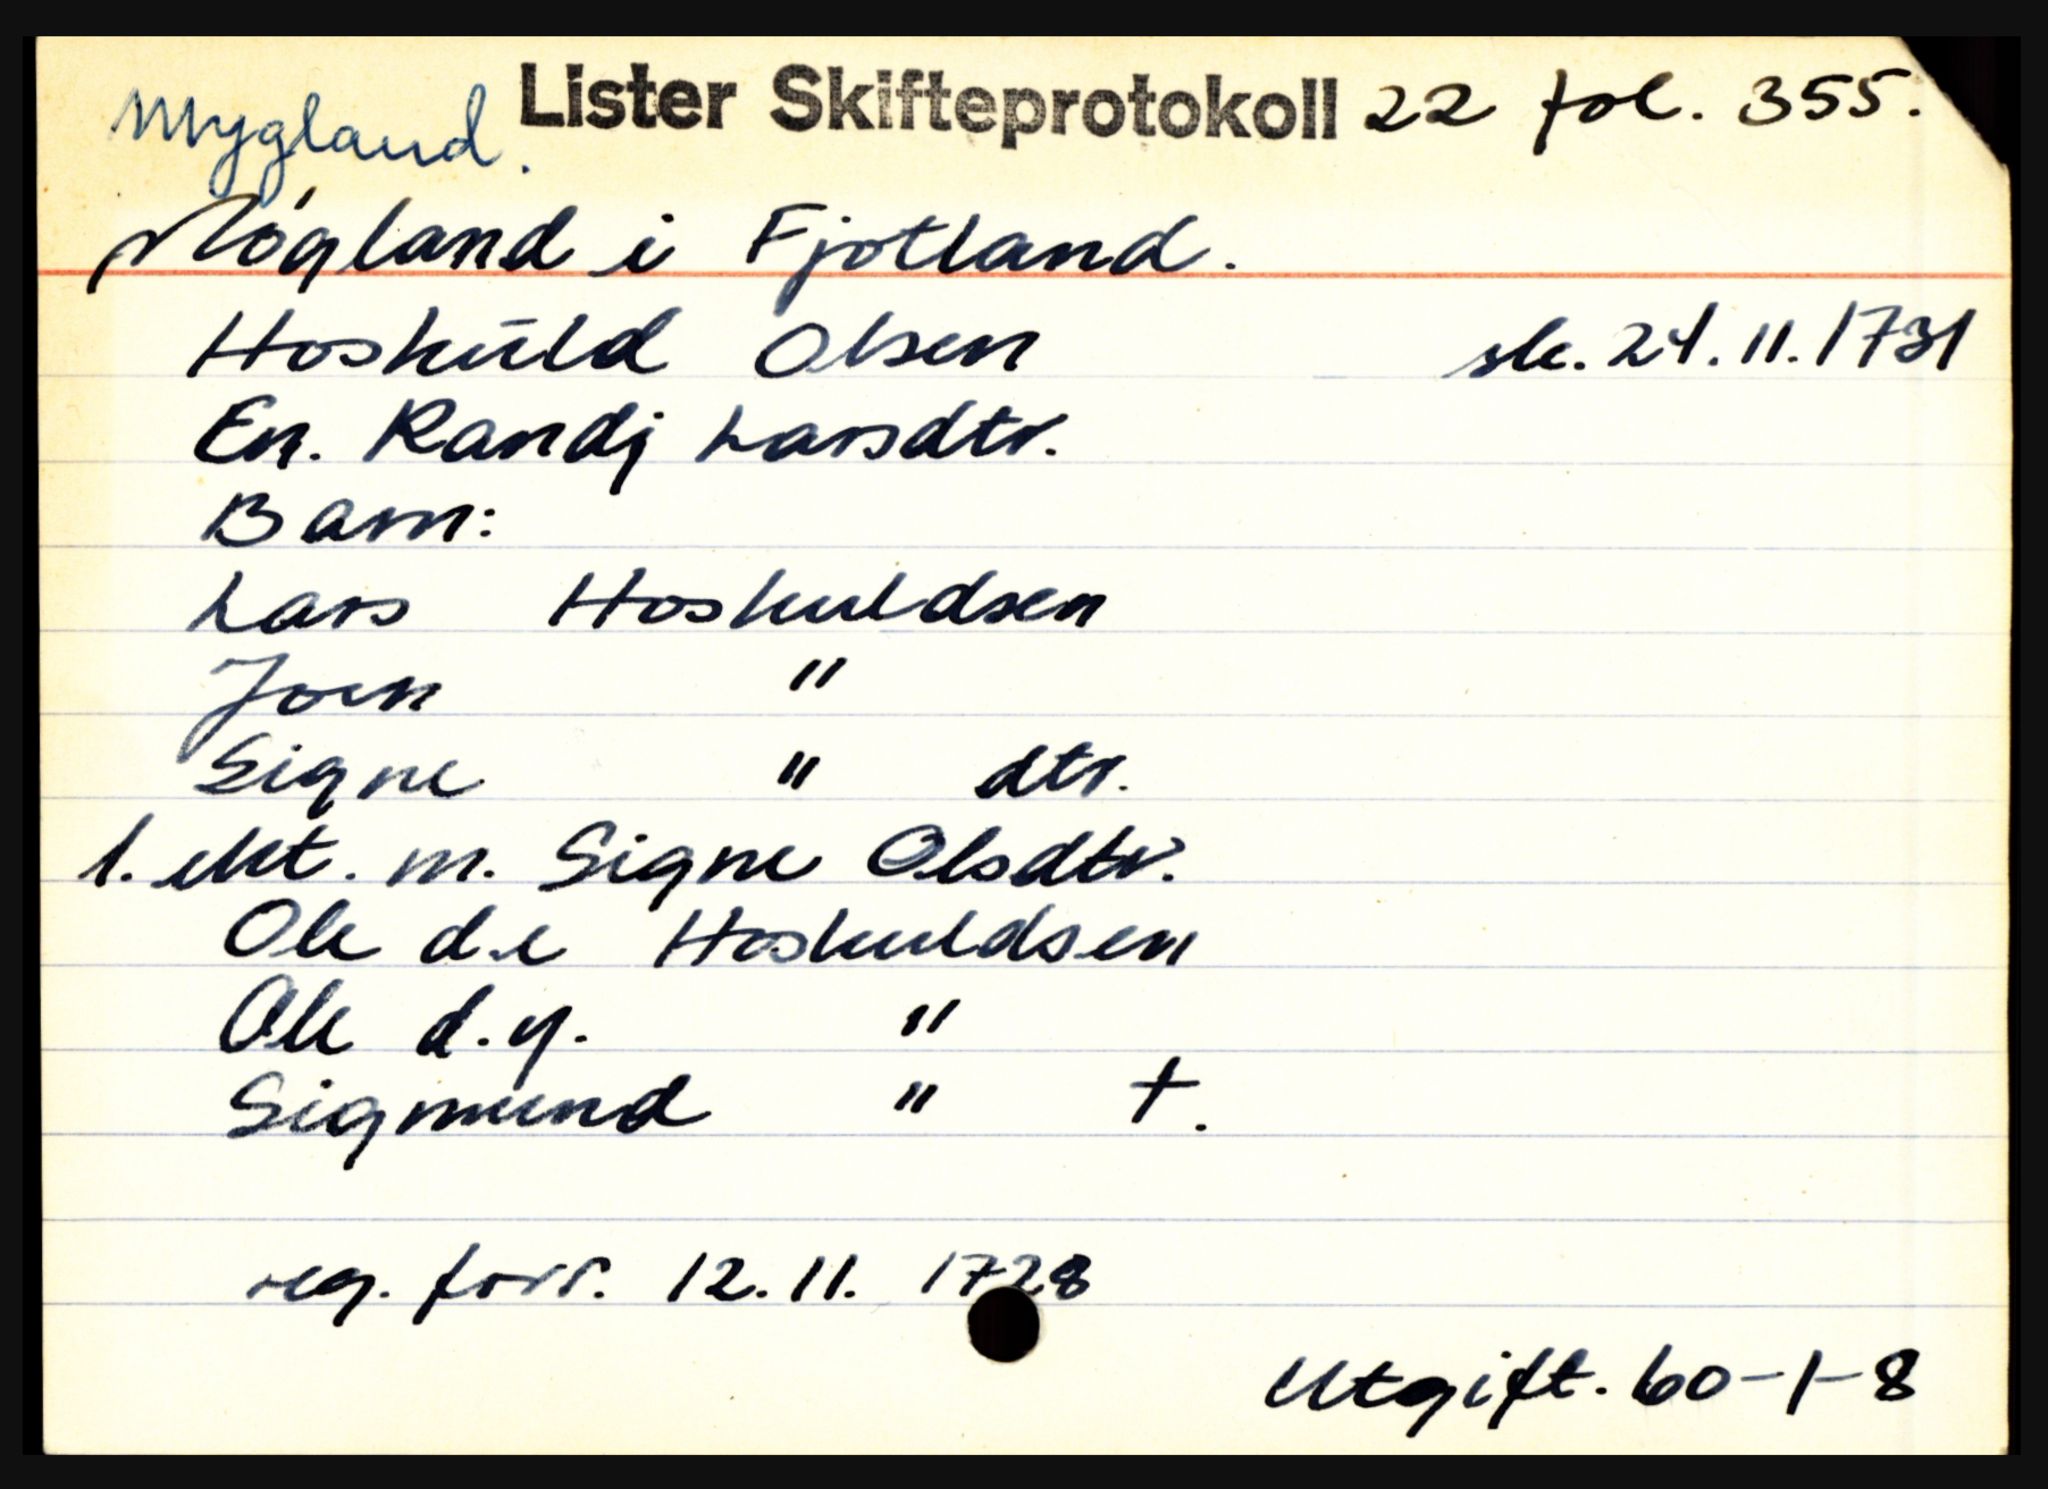 Mygland. Lister Skifteprotokoll 22 fol. 355.
Mögland i Fjotland.
Hoskuld Olsen sk. 24.11.1731
En. Randj Larsdtr.
Barn:
Lars Hoskuldsen
Joen "
Signe " dtr.
1. ekt. m. Signe Olsdtr.
Ole d.e Hoskuldsen
Ole d.y. "
Sigmund " †.
reg. forr. 12.11. 1728
Utgift. 60-1-8